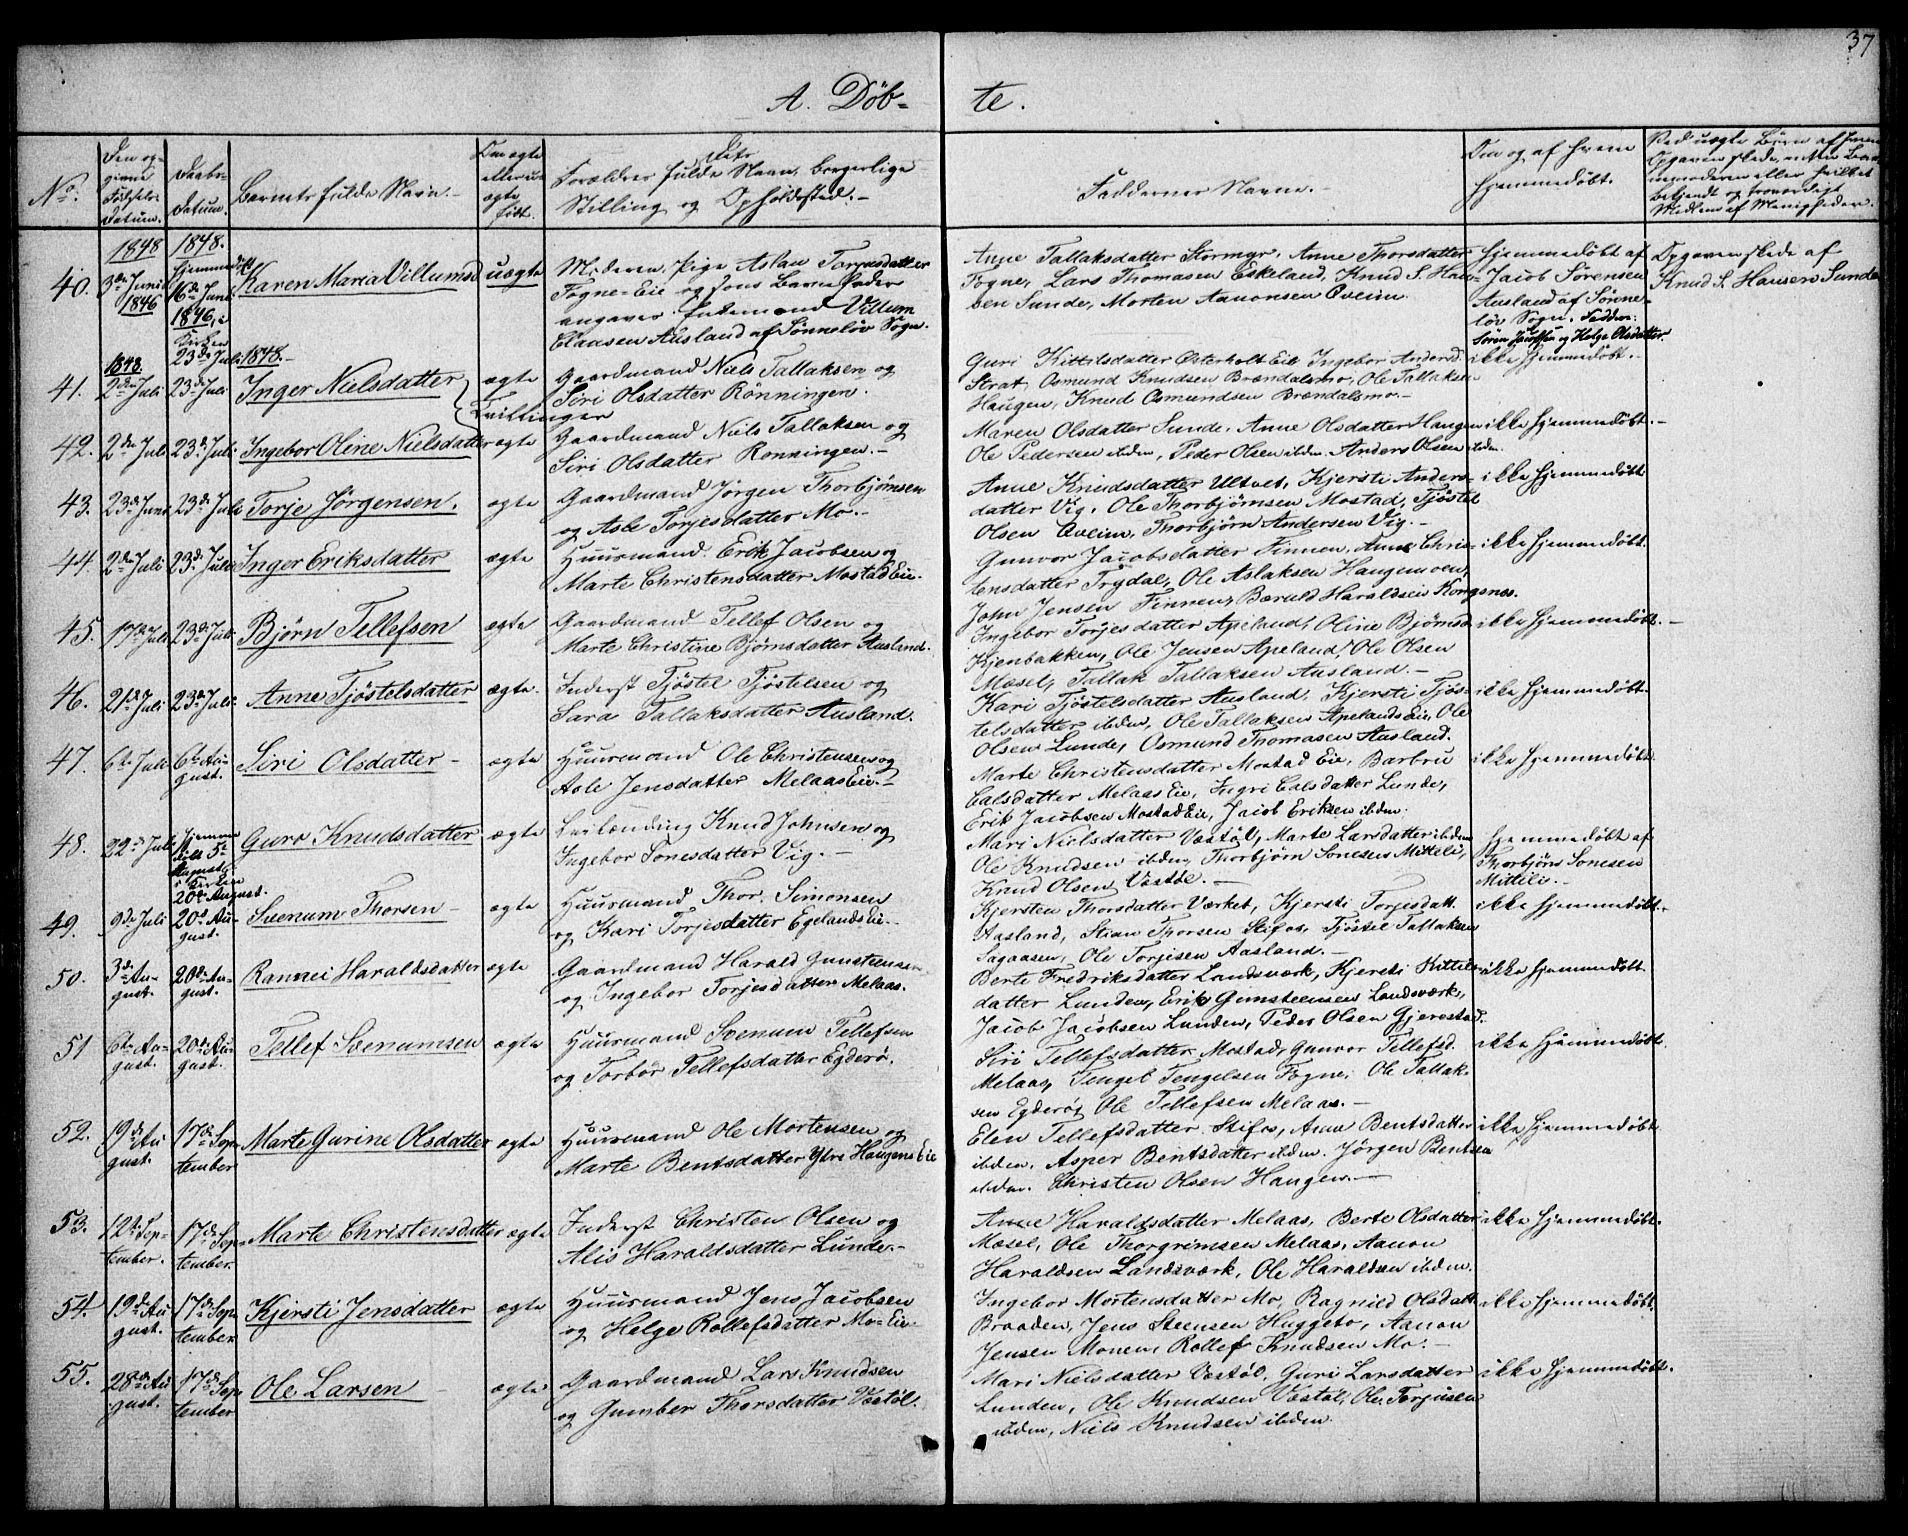 37
A. Döb-
te.
No.
Den op-
givne
Fødsels-
Datum.
Daabs-
Datum.
Barnets fulde Navn.-
Om ægte
eller u-
ægte
født.
Forældres fulde Navn, borgerlige
Stilling og Opholdssted.-
Faddernes Navne.-
Om og af hvem
hjemmedöbt.
1848
1848.
40.
3de Juni
1846
Hjemmedöbt
16de Juni
1846, i
Kirken
23de Juli 1848.-
Karen Maria Villumsd
uægte
Moderen, Pige Aslau Torjusdatter
Fogne-Eie og som Barnefader
angaves Enkemand Villum
Clausen Ausland af Sönneløv Sogn.
Anne Tallaksdatter Stormyr, Anne Thorsdatter
Fogne, Lars Thomasen Eskeland, Knud S. Han-
sen Sunde, Morten Aanonsen Qveim.
Hjemmedöbt af
Jacob Sörensen
Ausland af Sönne-
löv Sogn. Faddere:
Sören Jacobsen og Helge Olsdatter
Opgaven skede af
Knud S. Hansen Sunde
1848.
41.
2de Juli
23de Juli
Inger Nielsdatter
Tvillinger
ægte
Gaardmand Niels Tallaksen og
Siri Olsdatter Rönningen.
Guri Kittilsdatter Osterholt Eie Ingebor Andersd.
Strat, Osmund Knudsen Brændalsmo, Ole Tallaksen
Haugen, Knud Osmundsen Brændalsmo.-
ikke hjemmedöbt.-
42.
2de Juli
23de Juli
Ingebor Oline Nielsdatter
ægte
Gaardmand Niels Tallaksen og
Siri Olsdatter Rönningen.-
Maren Olsdatter Sunde, Anne Olsdatter Haugen
Ole Pedersen ibidem, Peder Olsen ibidem. Anders Olsen ibidem.
ikke hjemmedöbt.-
43.
23de Juni
23de Juli
Torje Jörgensen.
ægte
Gaardmand Jörgen Thorbjörnsen
og Asle Torjesdatter Mo.-
Anne Knudsdatter Ultvet, Kjersti Anders-
datter Vig, Ole Thorbjörnsen Mostad, Tjöstel
Olsen Qveim, Thorbjörn Andersen Vig.-
ikke hjemmedöbt
44.
2de Juli
23de Juli
Inger Eriksdatter
ægte
Huusmand Erik Jacobsen og
Marte Christensdatter Mostad Eie.
Gunvor Jacobsdatter Finnen, Anne Chris-
tensdatter Trydal, Ole Aslaksen Haugemoen,
John Jensen Finnen, Bæruld Haraldsen Kongsnes.
ikke hjemmedöbt.
45.
17de Juli
23de Juli
Björn Tellefsen
ægte
Gaardmand Tellef Olsen og
Marte Christine Björnsdatter Ausland.
Ingebor Torjesdatter Apeland, Oline Björnsd.
Kjenbakken, Ole Jensen Apeland, Ole Olsen
Mæsel, Tallak Tallaksen Ausland.-
ikke hjemmedöbt.-
46.
21de Juli
23de Juli
Anne Tjöstelsdatter
ægte.
Inderst Tjöstel Tjöstelsen og
Sara Tallaksdatter Ausland.
Kari Tjöstelsdatter Ausland, Kjersti Tjös-
telsdatter ibidem, Ole Tallaksen Apelands Eie, Ole
Olsen Lunde, Osmund Thomasen Ausland.
ikke hjemmedöbt.
47.
6te Juli
6te Au-
gust.
Siri Olsdatter-
ægte
Huusmand Ole Christensen og
Asle Jensdatter Melaas Eie.-
Marte Christensdatter Mostad Eie, Barbru
Calsdatter Melaas Eie, Ingri Calsdatter Lunde,
Erik Jacobsen Mostad Eie, Jacob Eriksen ibidem.
ikke hjemmedöbt.
48.
22de Juli
Hjemme
5te
August,
i Kirken
20de August.
Guro Knudsdatter
ægte
Leilænding Knud Johnsen og
Ingebor Sonesdatter Vig.-
Mari Nielsdatter Vestöl, Marte Larsdatter ibidem
Ole Knudsen ibidem, Thorbjörn Sonesen Mitteli,
Knud Olsen Vestöl.-
Hjemmedöbt af
Thorbjörn Sonesen
Mitteli.-
49.
9de Juli
20de Au-
gust.
Svenum Thorsen-
ægte
Huusmand Thor Simonsen
og Kari Torjesdatter Egelands Eie
Kjersten Thorsdatter Værket, Kjersti Torjesdatt
Aasland, Stian Thorsen Stifos, Tjöstel Tallaksen
Sagaasen, Ole Torjesen Aasland.-
ikke hjemmedöbt.-
50.
3de Au-
gust.
20de Au-
gust.
Rannei Haraldsdatter
ægte
Gaardmand Harald Gunstensen
og Ingebor Torjesdatter Melaas.
Berte Fredriksdatter Landsværk, Kjersti Kittils-
datter Lunden, Erik Gunsteensen Landsværk,
Jacob Jacobsen Lunden, Peder Olsen Gjerestad.
ikke hjemmedöbt.
51
6te Au-
gust.
20de Au-
gust.
Tellef Svenumsen
ægte
Huusmand Svenum Tellefsen
og Torbor Tellefsdatter Egderö.
Siri Tellefsdatter Mostad, Gunvor Tellefsd.
Melaas, Tengel Tengelsen Fogne, Ole Tallak-
sen Egderö, Ole Tellefsen Melaas.-
ikke hjemmedöbt.
52.
19de Au-
gust.
17de Sep-
tember
Marte Gurine Olsdatter
ægte
Huusmand Ole Mortensen og
Marte Bentsdatter Ytre Haugens Eie
Elen Tellefsdatter Stifos, Anne Bentsdatter
ibidem. Asper Bentsdatter ibidem. Jörgen Bentsen
ibidem. Christen Olsen Haugen.-
ikke hjemmedöbt
53.
12te Sep-
tember.
17de Sep-
tember.
Marte Christensdatter
ægte
Inderst Christen Olsen og
Alis Haraldsdatter Lunde.-
Anne Haraldsdatter Melaas, Berte Olsdatter
Mæsel, Ole Thorgrimsen Melaas, Aanon
Haraldsen Landsværk, Ole Haraldsen ibidem.
ikke hjemmedöbt.
54.
19de Au-
gust.
17de Sep-
tember.
Kjersti Jensdatter
ægte
Huusmand Jens Jacobsen
og Helge Rollefsdatter Mo-Eie
Ingebor Mortensdatter Mo, Ragnild Olsdatt.
Braaden, Jens Steensen Huggeto, Aanon
Jensen Monen, Rollef Knudsen Mo.-
ikke hjemmedöbt.
55.
28de Au-
gust.
17de Sep-
tember
Ole Larsen
ægte
Gaardmand Lars Knudsen
og Gunber Thorsdatter Vestöl.
Mari Nielsdatter Vestöl, Guri Larsdatter
Lunden, Ole Knudsen Vestöl, Ole Torjusen
ibidem, Niels Knudsen ibidem.
ikke hjemmedöbt.